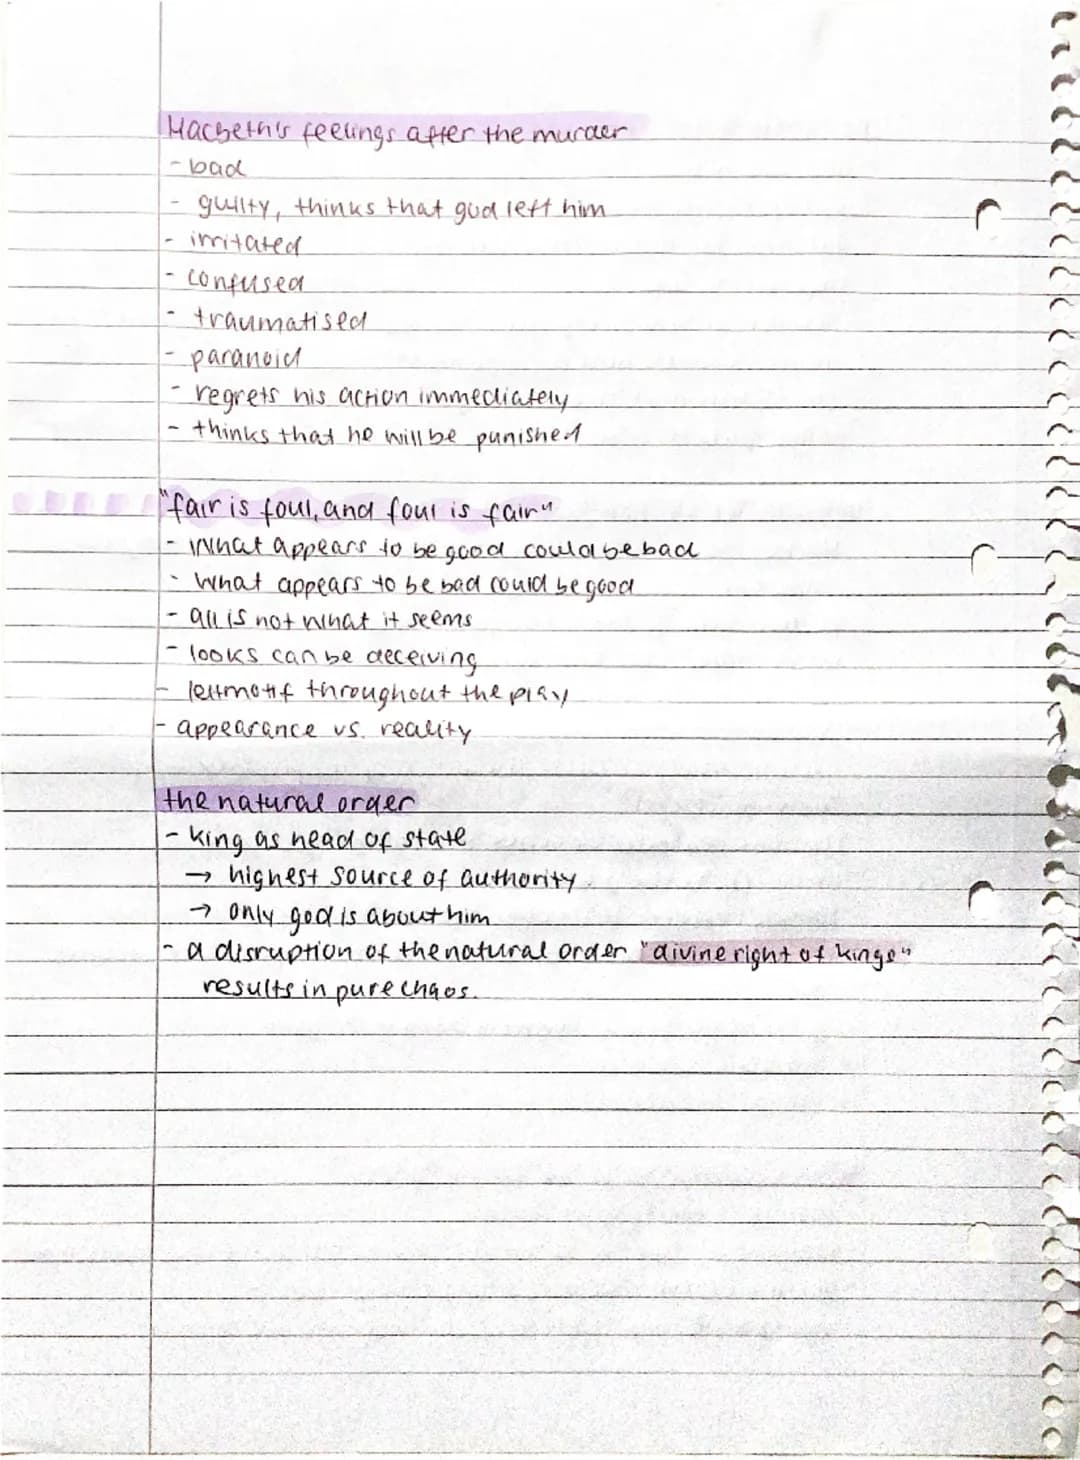 Macbeth's feelings after the murder
- bad
- guilty, thinks that god left him
- irritated
- confused
- traumatised
- paranoid
- regrets his action immediately
- thinks that he will be punished
"fair is foul, and foul is fair"
- What appears to be good could be bad
- What appears to be bad could be good
- all is not what it seems
- looks can be deceiving
- leitmotif throughout the play
- appearance vs. reality
the natural order
- king as head of state
→ highest source of authority
→ only god is about him
- a disruption of the natural order "divine right of kings"
results in pure chaos.